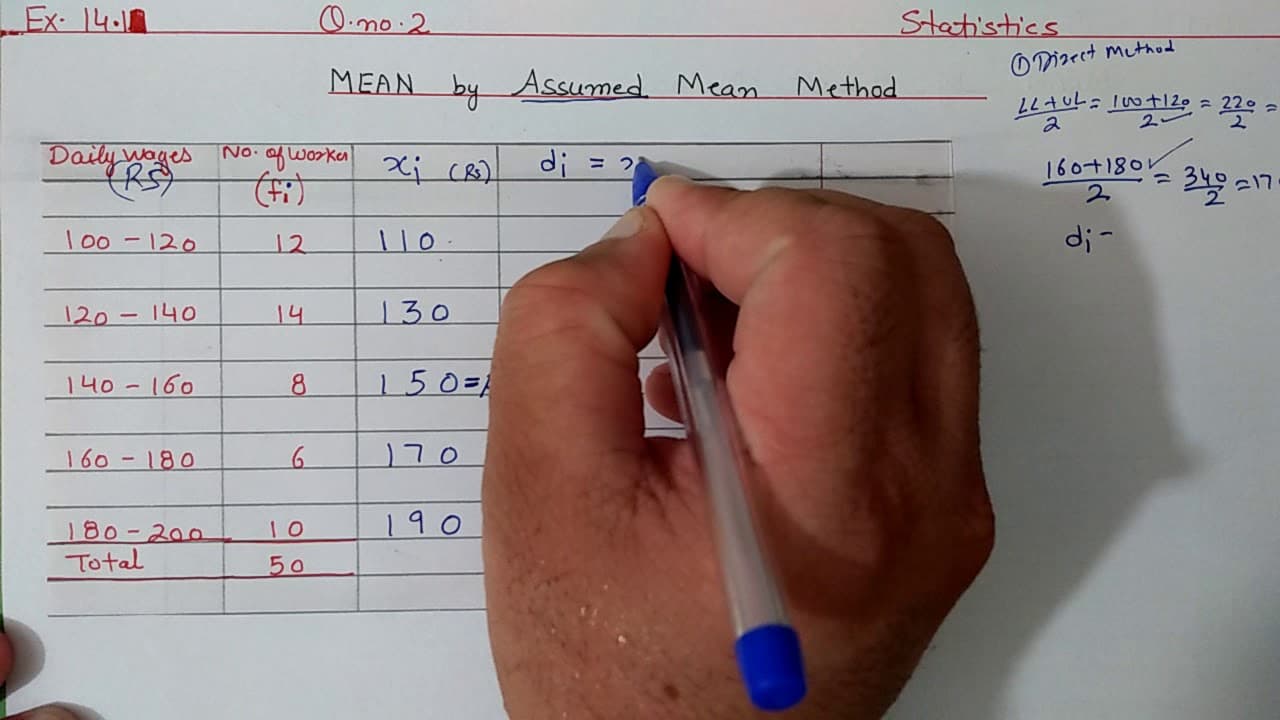 Ex. 14.1 Q.no.2 Statistics
MEAN by Assumed Mean Method
① Direct Method
LL+UL/2 = 100+120/2 = 220/2 =
160+180/2 = 340/2 = 17
di -
Daily wages (Rs) No. of worker (fi) xi (Rs) di =
100 - 120 12 110
120 - 140 14 130
140 - 160 8 150 =
160 - 180 6 170
180 - 200 10 190
Total 50